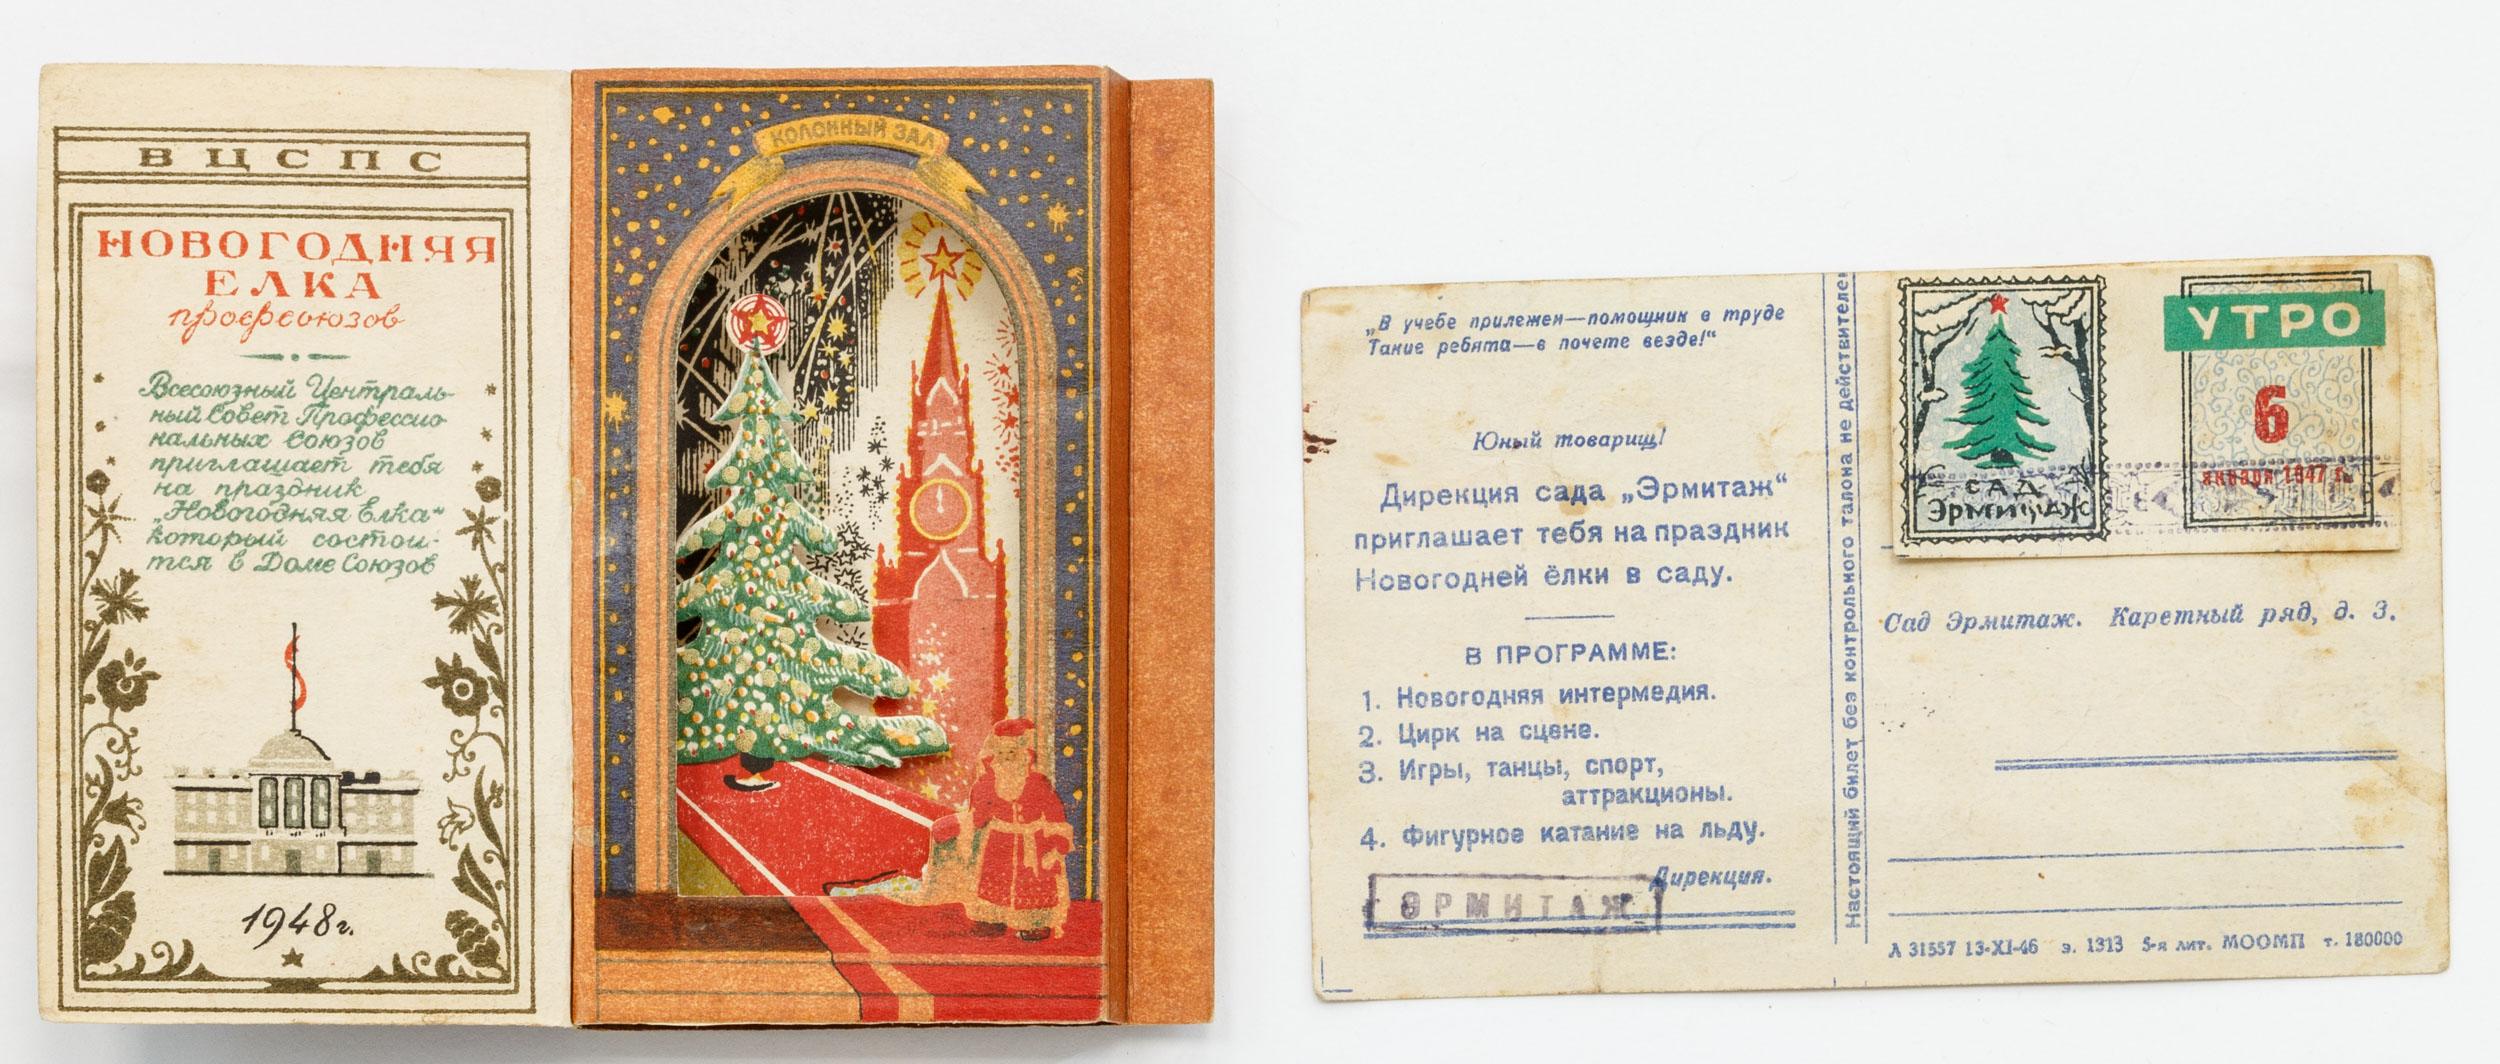 ВЦСПС
НОВОГОДНЯЯ
ЕЛКА
профсоюзов
Всесоюзный Централь-
ный Совет Профессио
нальных Союзов
приглашает тебя
на праздник
„Новогодняя Елка“
который состои-
тся в Доме Союзов
1948 г.
КОЛОННЫЙ ЗАЛ
„В учебе прилежен—помощник в труде
Такие ребята—в почете везде!“
Юный товарищ!
Дирекция сада „Эрмитаж“
приглашает тебя на праздник
Новогодней ёлки в саду.
В ПРОГРАММЕ:
1. Новогодняя интермедия.
2. Цирк на сцене.
3. Игры, танцы, спорт,
аттракционы.
4. Фигурное катание на льду.
Дирекция.
ЭРМИТАЖ
Настоящий билет без контрольного талона не действителен
САД
Эрмитаж
УТРО
6
января 1947 г.
Сад Эрмитаж. Каретный ряд, д. 3.
Л 31557 13-XI-46 э. 1313 5-я лит. МООМП т. 180000